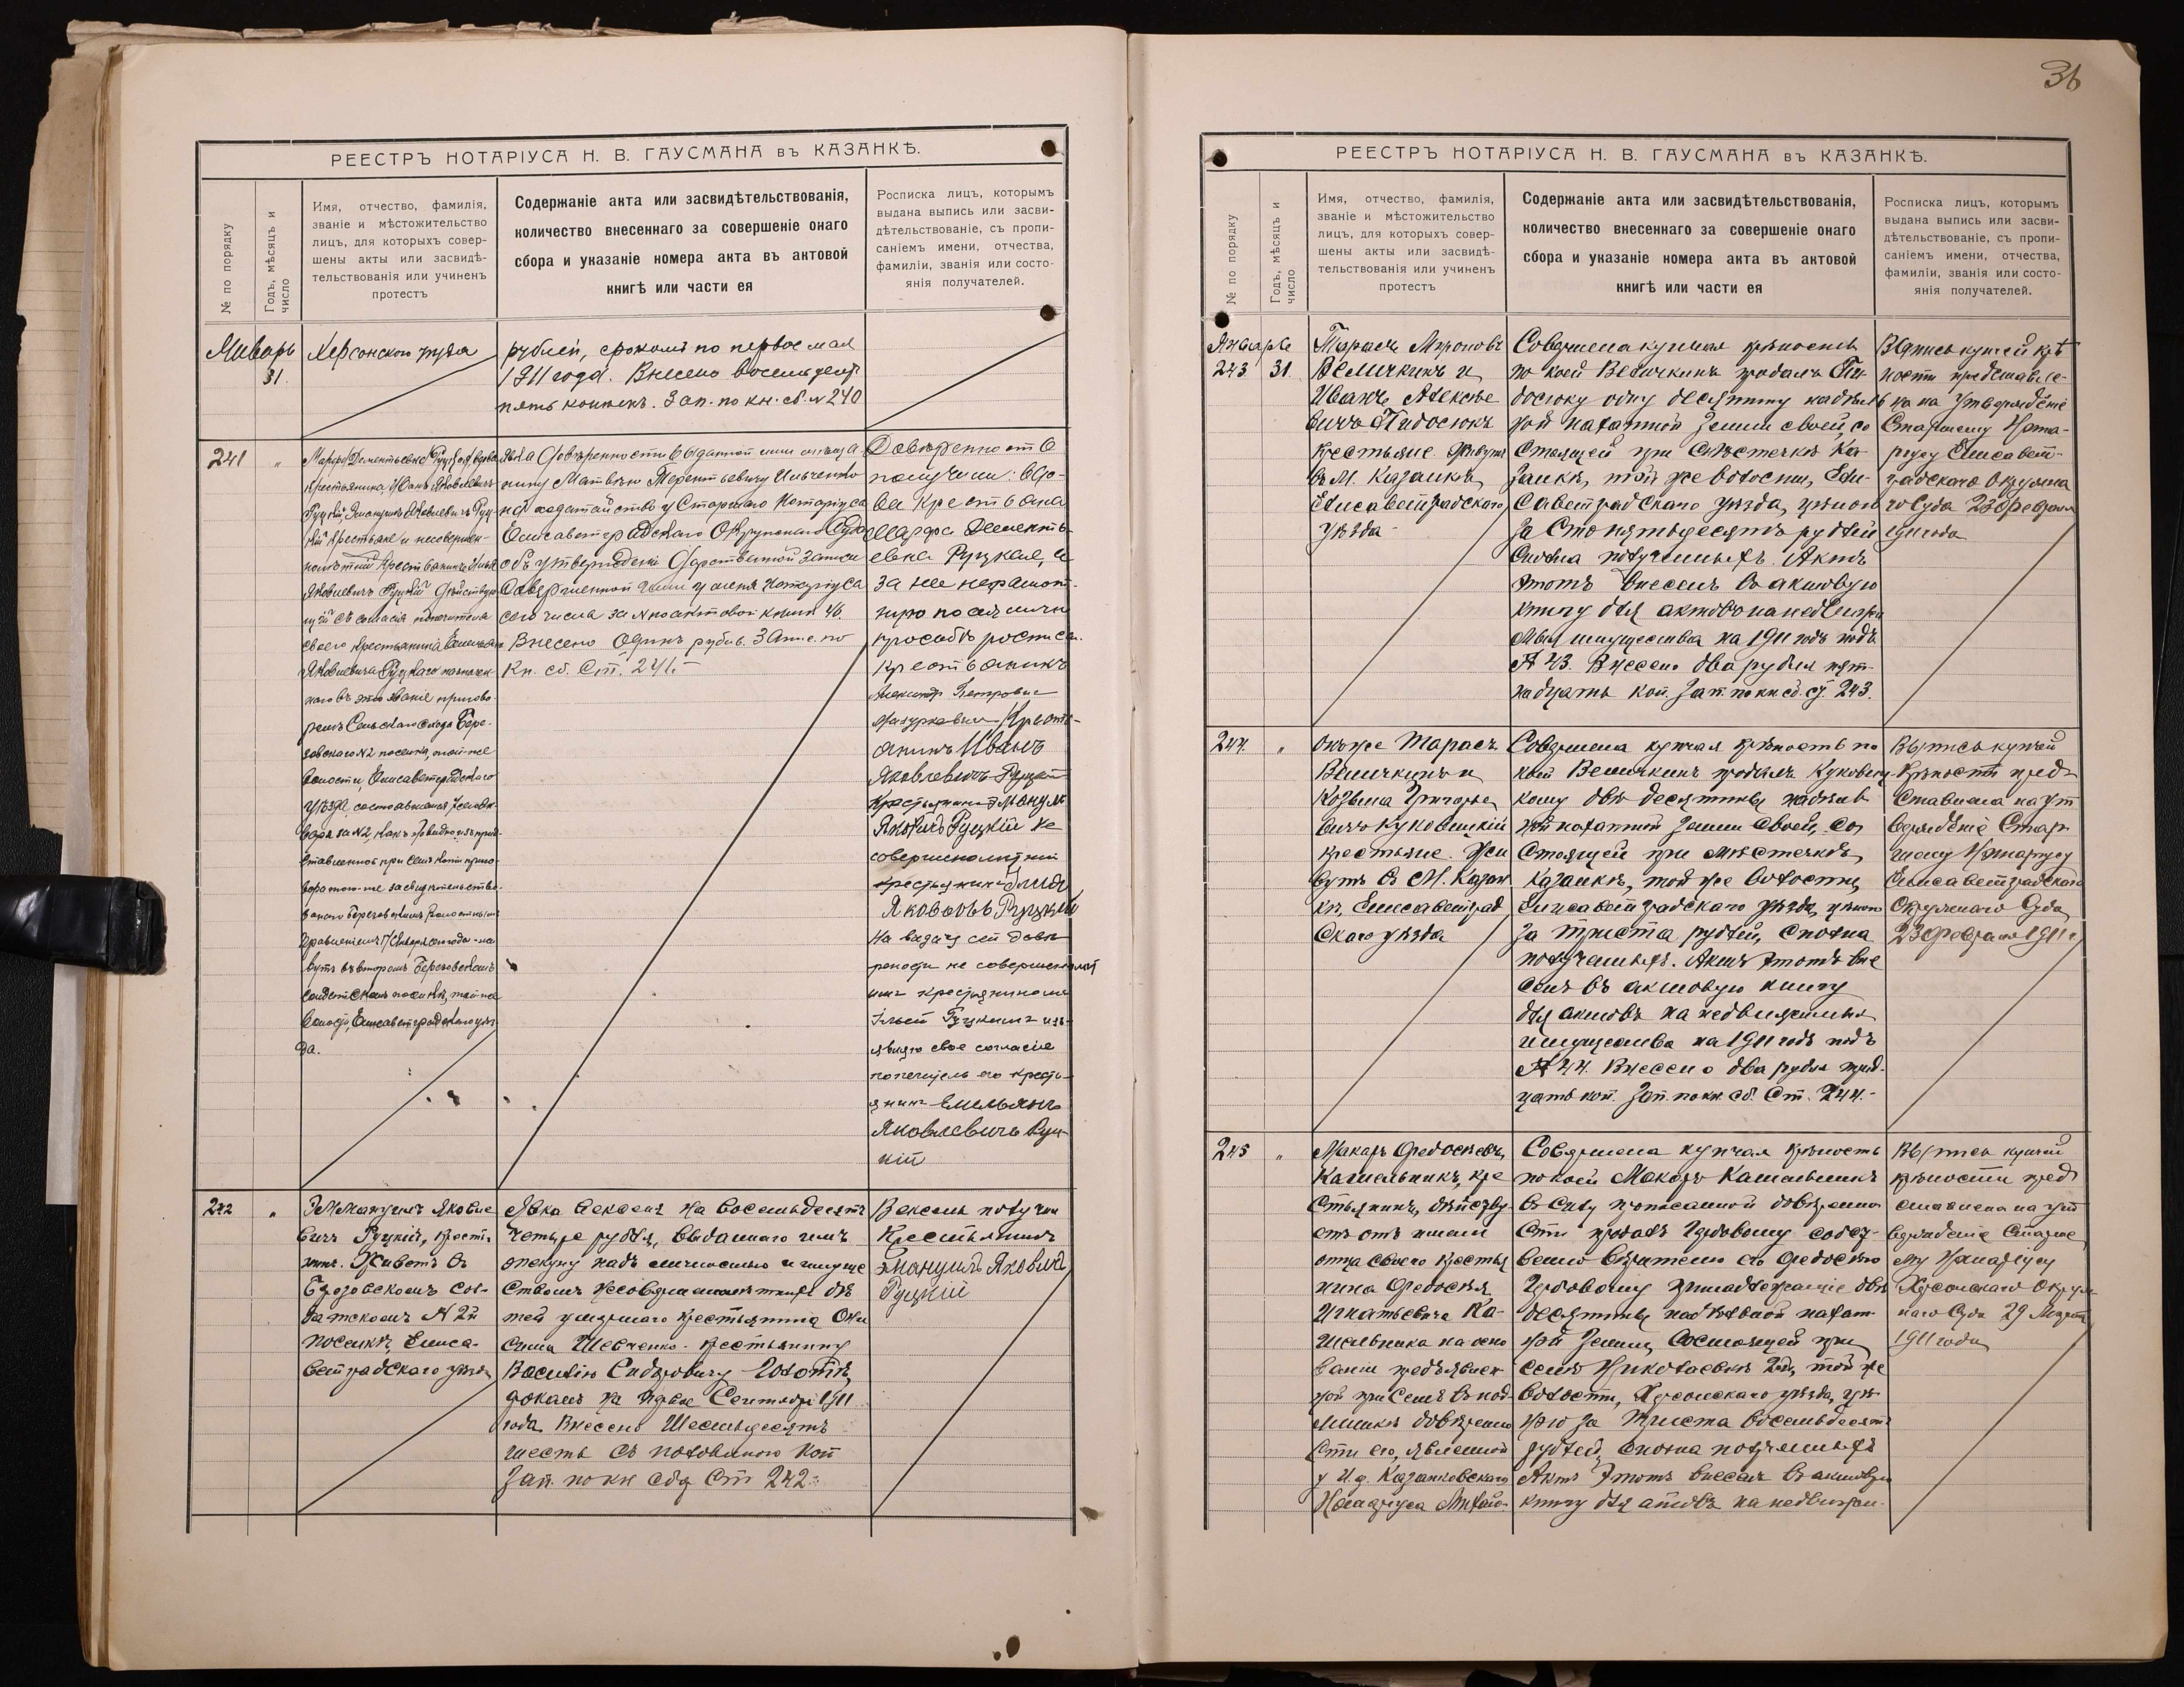 РЕЕСТРЪ НОТАРІУСА Н. В. ГАУСМАНА въ КАЗАНКѢ.
№ по порядку
Годъ, мѣсяцъ и число
Имя, отчество, фамилія,
званіе и мѣстожительство
лицъ, для которыхъ совер-
шены акты или засвидѣ-
тельствованія или учиненъ
протестъ
Содержаніе акта или засвидѣтельствованія,
количество внесеннаго за совершеніе онаго
сбора и указаніе номера акта въ актовой
книгѣ или части ея
Росписка лицъ, которымъ
выдана выпись или засви-
дѣтельствованіе, съ пропи-
саніемъ имени, отчества,
фамиліи, званія или состо-
янія получателей.
Январь
31.
Херсонскаго уѣзда
рублей, срокомъ по первое мая
1911 года. Внесено восемьдесят
пять копѣекъ. Зап. по кн. сб. № 240
241 "
Марфа Дементьевна Руцкая, вдова
крестьянина, Иванъ Яковлевичъ
Руцкій, Эммануилъ Яковлевичъ Руц-
кій крестьяне и несовершен-
нолѣтній крестьянинъ Илья
Яковлевичъ Руцкій дѣйствую
щій съ согласія попечителя
своего крестьянина Емельяна
Яковлевича Руцкаго назначен
наго въ это званіе пригово-
ромъ сельскаго схода Бере-
зовскаго №2 поселка, той-же
волости, Елисаветградскаго
уѣзда, состоявшимся
за №2, какъ видно изъ пред
ставленной при семъ копіи приго-
вора той-же засвидѣтельство-
ванной Березовскимъ Волостнымъ
Правленіемъ 17 Января сего года - жи
вутъ въ второмъ Березовскомъ
солдатскомъ поселкѣ, той-же
волости, Елисаветградскаго уѣз-
да.
Явка довѣренности выданной ими
нину Матвѣю Терентьевичу Ильченко
на ходатайство у Старшаго Нотаріуса
Елисаветградскаго Окружнаго Суда
объ утвержденіи дарственной записи
совершенной ими у меня нотаріуса
сего числа за № по актовой книгѣ 46.
Внесено одинъ рубль. Запис. по
кн. сб. Ст. 241.-
Довѣренность
получили: вдо-
ва крестьяна
Марфа Дементь
евна Руцкая, а
за нее неграмот-
ную по ея личн
просьбѣ росписа.
крестьянинъ
Александр Петрович
Мазуркевич Крестъ-
янинъ Иванъ
Яковлевичъ Руцкій
Крестьянинъ Эмануил
Яковличъ Руцкій не
совершенолѣтній
крестьянинъ Илья
Якововъ Руцкый
На видачу сей довѣ
рености не совершенолѣт
нимъ крестьяниномъ
Ільей Руцкимъ изъ-
являю свое согласіе
попечитель его крестъ-
янинъ Емельянъ
Яковлевичъ Руц-
кій
242 "
Эммануилъ Яковле
вичъ Руцкій, крестья
нинъ. Живетъ въ
Березовскомъ сол-
датскомъ № 2й
поселкѣ, Елиса-
ветградскаго уѣзда
Явка векселя на восемьдесятъ
четыре рубля, выданнаго имъ
опекуну надъ личностью и имуще
ствомъ несовершеннолѣтнихъ дѣ
тей умершаго крестьянина Они
сима Шевченко - крестьянину
Василію Сидоровичу Голотѣ,
срокомъ на первое Сентября 1911
года. Внесено Шестьдесятъ
шесть съ половиною коп
Зап. по кн сб. Ст 242.-
Вексель получил
Крестьянинъ
Эмануилъ Яковлев
Руцкій
36
РЕЕСТРЪ НОТАРІУСА Н. В. ГАУСМАНА въ КАЗАНКѢ.
№ по порядку
Годъ, мѣсяцъ и число
Имя, отчество, фамилія,
званіе и мѣстожительство
лицъ, для которыхъ совер-
шены акты или засвидѣ-
тельствованія или учиненъ
протестъ
Содержаніе акта или засвидѣтельствованія,
количество внесеннаго за совершеніе онаго
сбора и указаніе номера акта въ актовой
книгѣ или части ея
Росписка лицъ, которымъ
выдана выпись или засви-
дѣтельствованіе, съ пропи-
саніемъ имени, отчества,
фамиліи, званія или состо-
янія получателей.
Январь
243 31.
Тарасъ Мироновъ
Величкинъ и
Иванъ Алексѣе
вичъ Пидосюкъ
крестьяне. Живутъ
въ М. Казанкѣ,
Елисаветградскаго
уѣзда -
Совершена купчая крѣпость
по коей Величкинъ продалъ Пи-
досюку одну десятину надѣль
ной пахатной земли своей, со
стоящей при мѣстечкѣ Ка-
занкѣ, той же волости, Ели-
саветградскаго уѣзда, цѣною
за Сто пятьдесятъ рублей
сполна полученныхъ. Актъ
этотъ внесенъ въ актовую
книгу для актовъ на недвижи
мыя имущества на 1911 годъ подъ
№ 43. Внесено два рубля пят-
надцать коп. Зап. по кн сб. ст. 243.
Выпись купчей крѣ
пости представле-
на на утвержденіе
Старшему Нота-
ріусу Елисавет-
градскаго Окружна
го Суда 23 февраля
1911 года
244. "
Онъ же Тарасъ
Величкинъ и
Козьма Григорье
вичъ Куковицкій
крестьяне. Жи
вутъ въ М. Казан
кѣ, Елисаветград
скаго уѣзда
Совершена купчая крѣпость по
коей Величкинъ продалъ Куковиц
кому двѣ десятины надѣль
ной пахатной земли своей, со
стоящей при мѣстечкѣ
Казанкѣ, той же волости,
Елисаветградскаго уѣзда, цѣною
за триста рублей, сполна
полученныхъ. Актъ этотъ вне
сенъ въ актовую книгу
для актовъ на недвижимыя
имущества на 1911 годъ подъ
№ 44. Внесено два рубля трид-
цать коп. Зап. по кн сб. Ст. 244.-
Выпись купчей
крѣпости пред-
ставлена на ут
вержденіе Стар
шему Нотаріусу
Елисаветградскаго
Окружнаго Суда
23 февраля 1911 г.
245 "
Макаръ Федосѣевъ
Кашельникъ, кре
стьянинъ, дѣйству
етъ отъ имени
отца своего крестья
нина Федосѣя
Игнатьевича Ка-
шельника на осно
ваніи предъявлен
ной при семъ въ под
линникѣ довѣренно
сти его, явленной
у И.д. Казанковскаго
Нотаріуса Михай-
Совершена купчая крѣпость
по коей Макаръ Кашельникъ
въ силу прописанной довѣренно
сти продалъ собст-
венно вѣрителю его Федосѣю
принадлежащіе двѣ
десятины надѣльной пахат-
ной земли, состоящей при
селѣ Николаевкѣ 2й, той же
волости, Херсонскаго уѣзда, цѣ-
ною за триста восемьдесятъ
рублей, сполна полученныхъ
Актъ этотъ внесенъ въ актовую
книгу для актовъ на недвижи-
Выпись купчей
крѣпости пред
ставлена на ут
вержденіе Старше
му Нотаріусу
Херсонскаго Окруж
наго Суда 29 Марта
1911 года